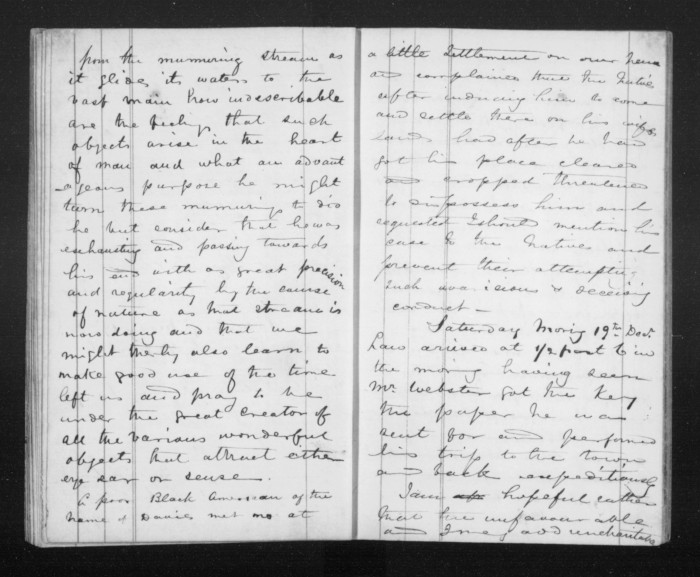 from the murmuring stream as
it glides its waters to the
vast main how indescribable
are the feelings that such
objects arise in the heart
of man and what an advant
-ageous purpose he might
turn these murmuring to did
he but consider that he was
exhausting and passing towards
his end with as great precision
and regularity by the course
of nature as that stream is
now doing and that we
might therby also learn to
make good use of the time
left us and pray to be
under the great Creator of
all the various wonderful
objects that attract either
eye ear or sense.
A poor Black American of the
name of Davies met me at
a little Settlement on our
and complained that the Natives
after inducing him to come
and settle there on his
had after he had
got his place cleared
and cropped threatened
to dispossess him and
requested I should mention his
case to the Natives and
prevent their attempting
such avaricious & deceiving
conduct —
Saturday Morng 19th Decr.
Law arrived at 1/2 past 6 in
the morng having seen
Mr. Webster got the Key
the paper he was
sent for and performed
his trip to the town
and back expeditiously
I am hopeful rather
that his unfavourable
and I may add uncharitable